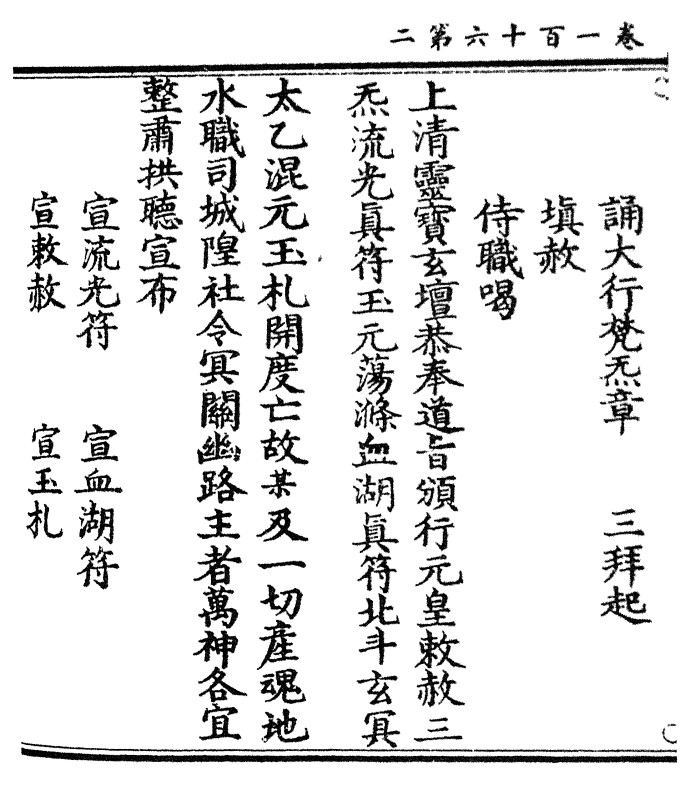 卷一百十六第二
誦大行梵炁章　三拜起
填赦
侍職喝
上清靈寶玄壇恭奉道旨頒行元皇敕赦三
炁流光眞符玉元蕩滌血湖眞符北斗玄冥
太乙混元玉札開度亡故某及一切產魂地
水職司城隍社令冥關幽路主者萬神各宜
整肅拱聽宣布
宣流光符　宣血湖符
宣敕赦　宣玉札